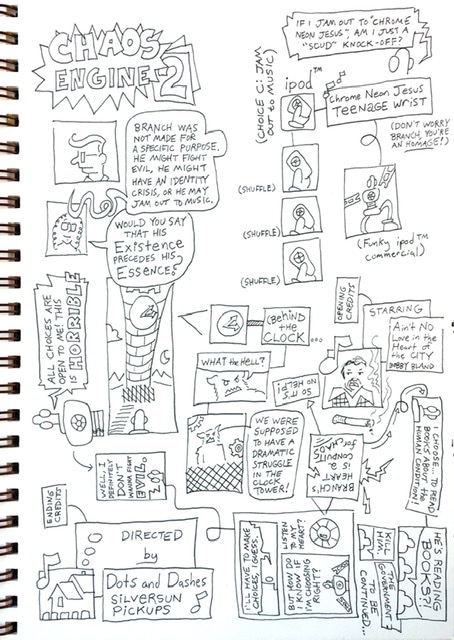 CHAOS
ENGINE 2
IF I JAM OUT TO "CHROME
NEON JESUS", AM I JUST A
"SCUD" KNOCK-OFF?
(CHOICE C: JAM
OUT TO MUSIC)
ipod™
(SHUFFLE)
(SHUFFLE)
(SHUFFLE)
Chrome Neon Jesus
TEENAGE WRIST
(DON'T WORRY
BRANCH, YOU'RE
AN HOMAGE!)
(Funky ipod™
commercial)
BRANCH WAS
NOT MADE FOR
A SPECIFIC PURPOSE.
HE MIGHT FIGHT
EVIL, HE MIGHT
HAVE AN IDENTITY
CRISIS, OR HE MAY
JAM OUT TO MUSIC.
WOULD YOU SAY
THAT HIS
Existence
PRECEDES HIS
Essence?
ALL CHOICES ARE
OPEN TO ME! THIS
IS HORRIBLE
(Behind
the
CLOCK...
WHAT the HELL?
WE WERE
SUPPOSED
TO HAVE A
DRAMATIC
STRUGGLE
IN THE
CLOCK
TOWER!
OPENING
CREDITS
STARRING
Ain't NO
Love in the
Heart of
the CITY
BOBBY BLAND
SO IT'S
NO HELP!
BRANCH'S
HEART
IS A
COMPUTER
I CHOOSE TO READ
BOOKS ABOUT the
HUMAN CONDITION!
HE'S READING
BOOKS?!
KILL
HIM!
THE GOVERNMENT
TO BE
CONTINUED...
WELL, I
DEFINITELY
DON'T
WANNA FIGHT
EVIL.
LISTEN
TO MY
HEART?
BUT HOW DO
I KNOW IF
I'M CHOOSING
RIGHT?
I'LL HAVE TO MAKE
CHOICES, I GUESS.
ENDING
CREDITS
DIRECTED
by
Dots and Dashes
SILVERSUN
PICKUPS